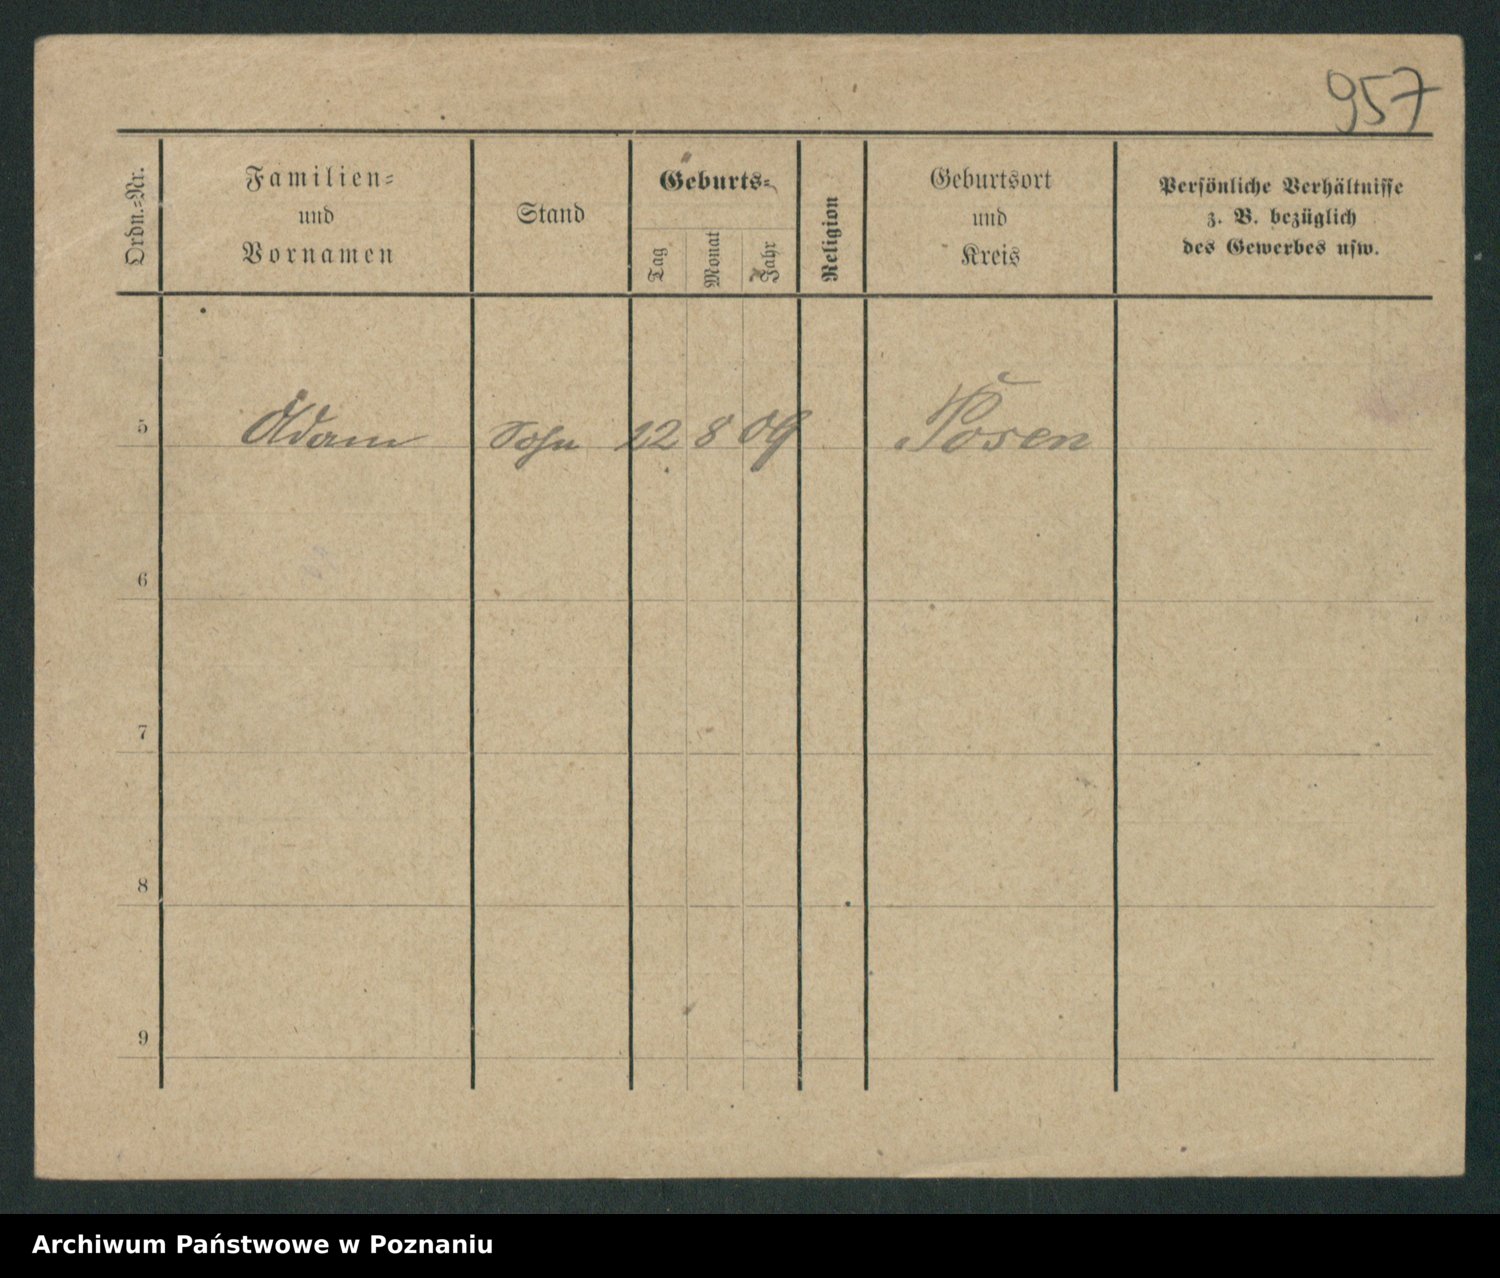 957
Ordn.-Nr.
Familien-
und
Vornamen
Stand
Geburts-
Tag
Monat
Jahr
Religion
Geburtsort
und
Kreis
Persönliche Verhältnisse
z. B. bezüglich
des Gewerbes usw.
5 Adam Sohn 12 8 09 Posen
6
7
8
9
Archiwum Państwowe w Poznaniu